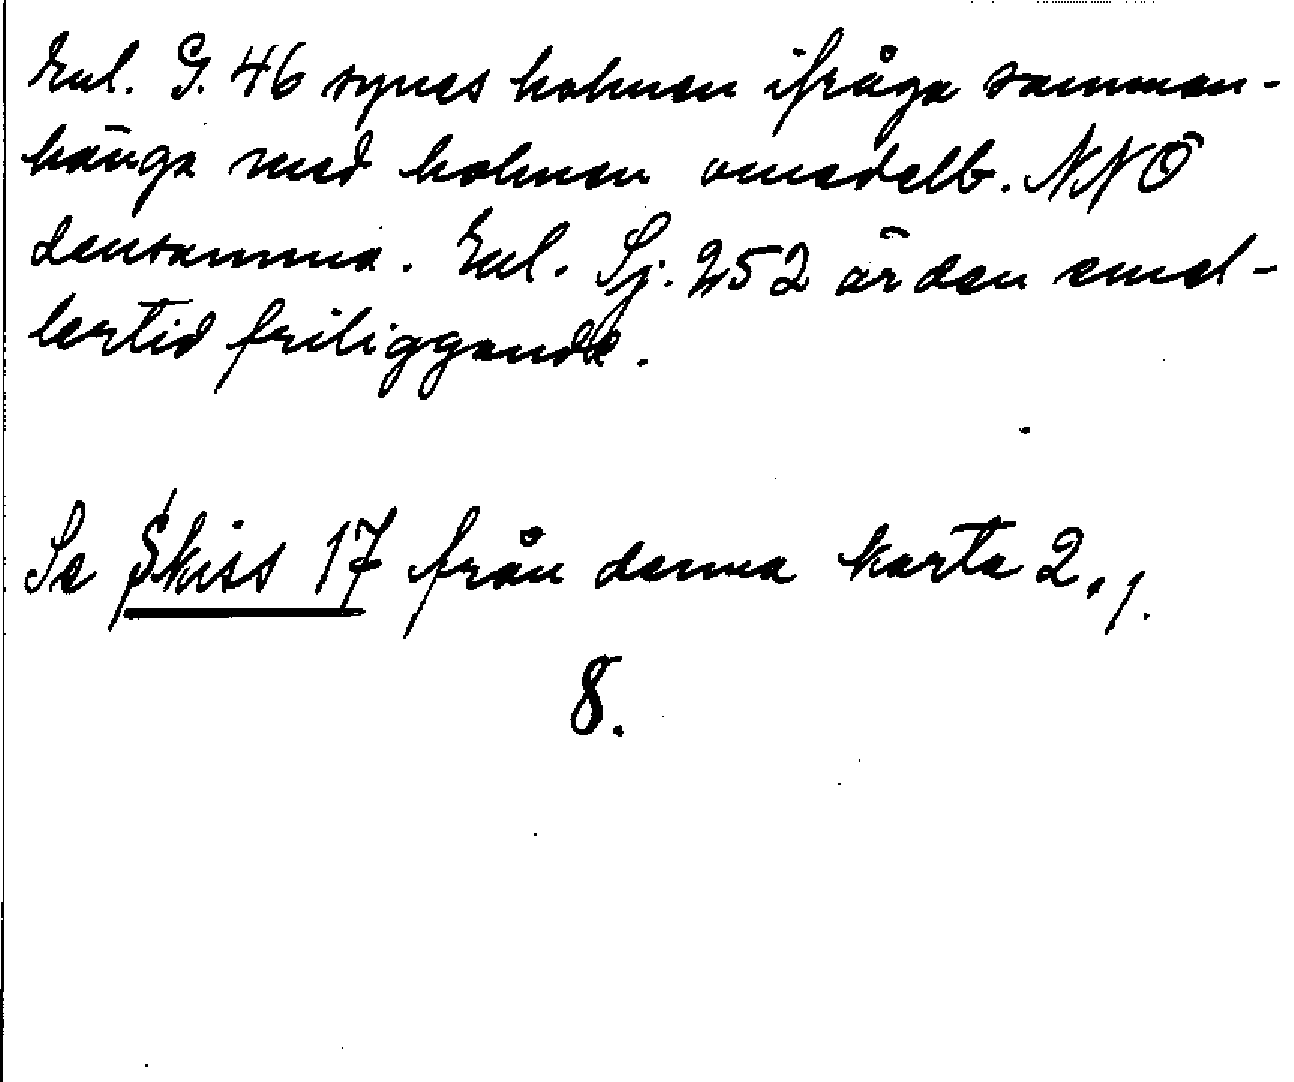 Enl. G. 46 synes holmen ifråga samman-
hänga med holmen omedelb. NNÖ
densamma. Enl. Sj. 252 är den emel-
lertid friliggande.
Se Skiss 17 från denna karta 2,1.
8.